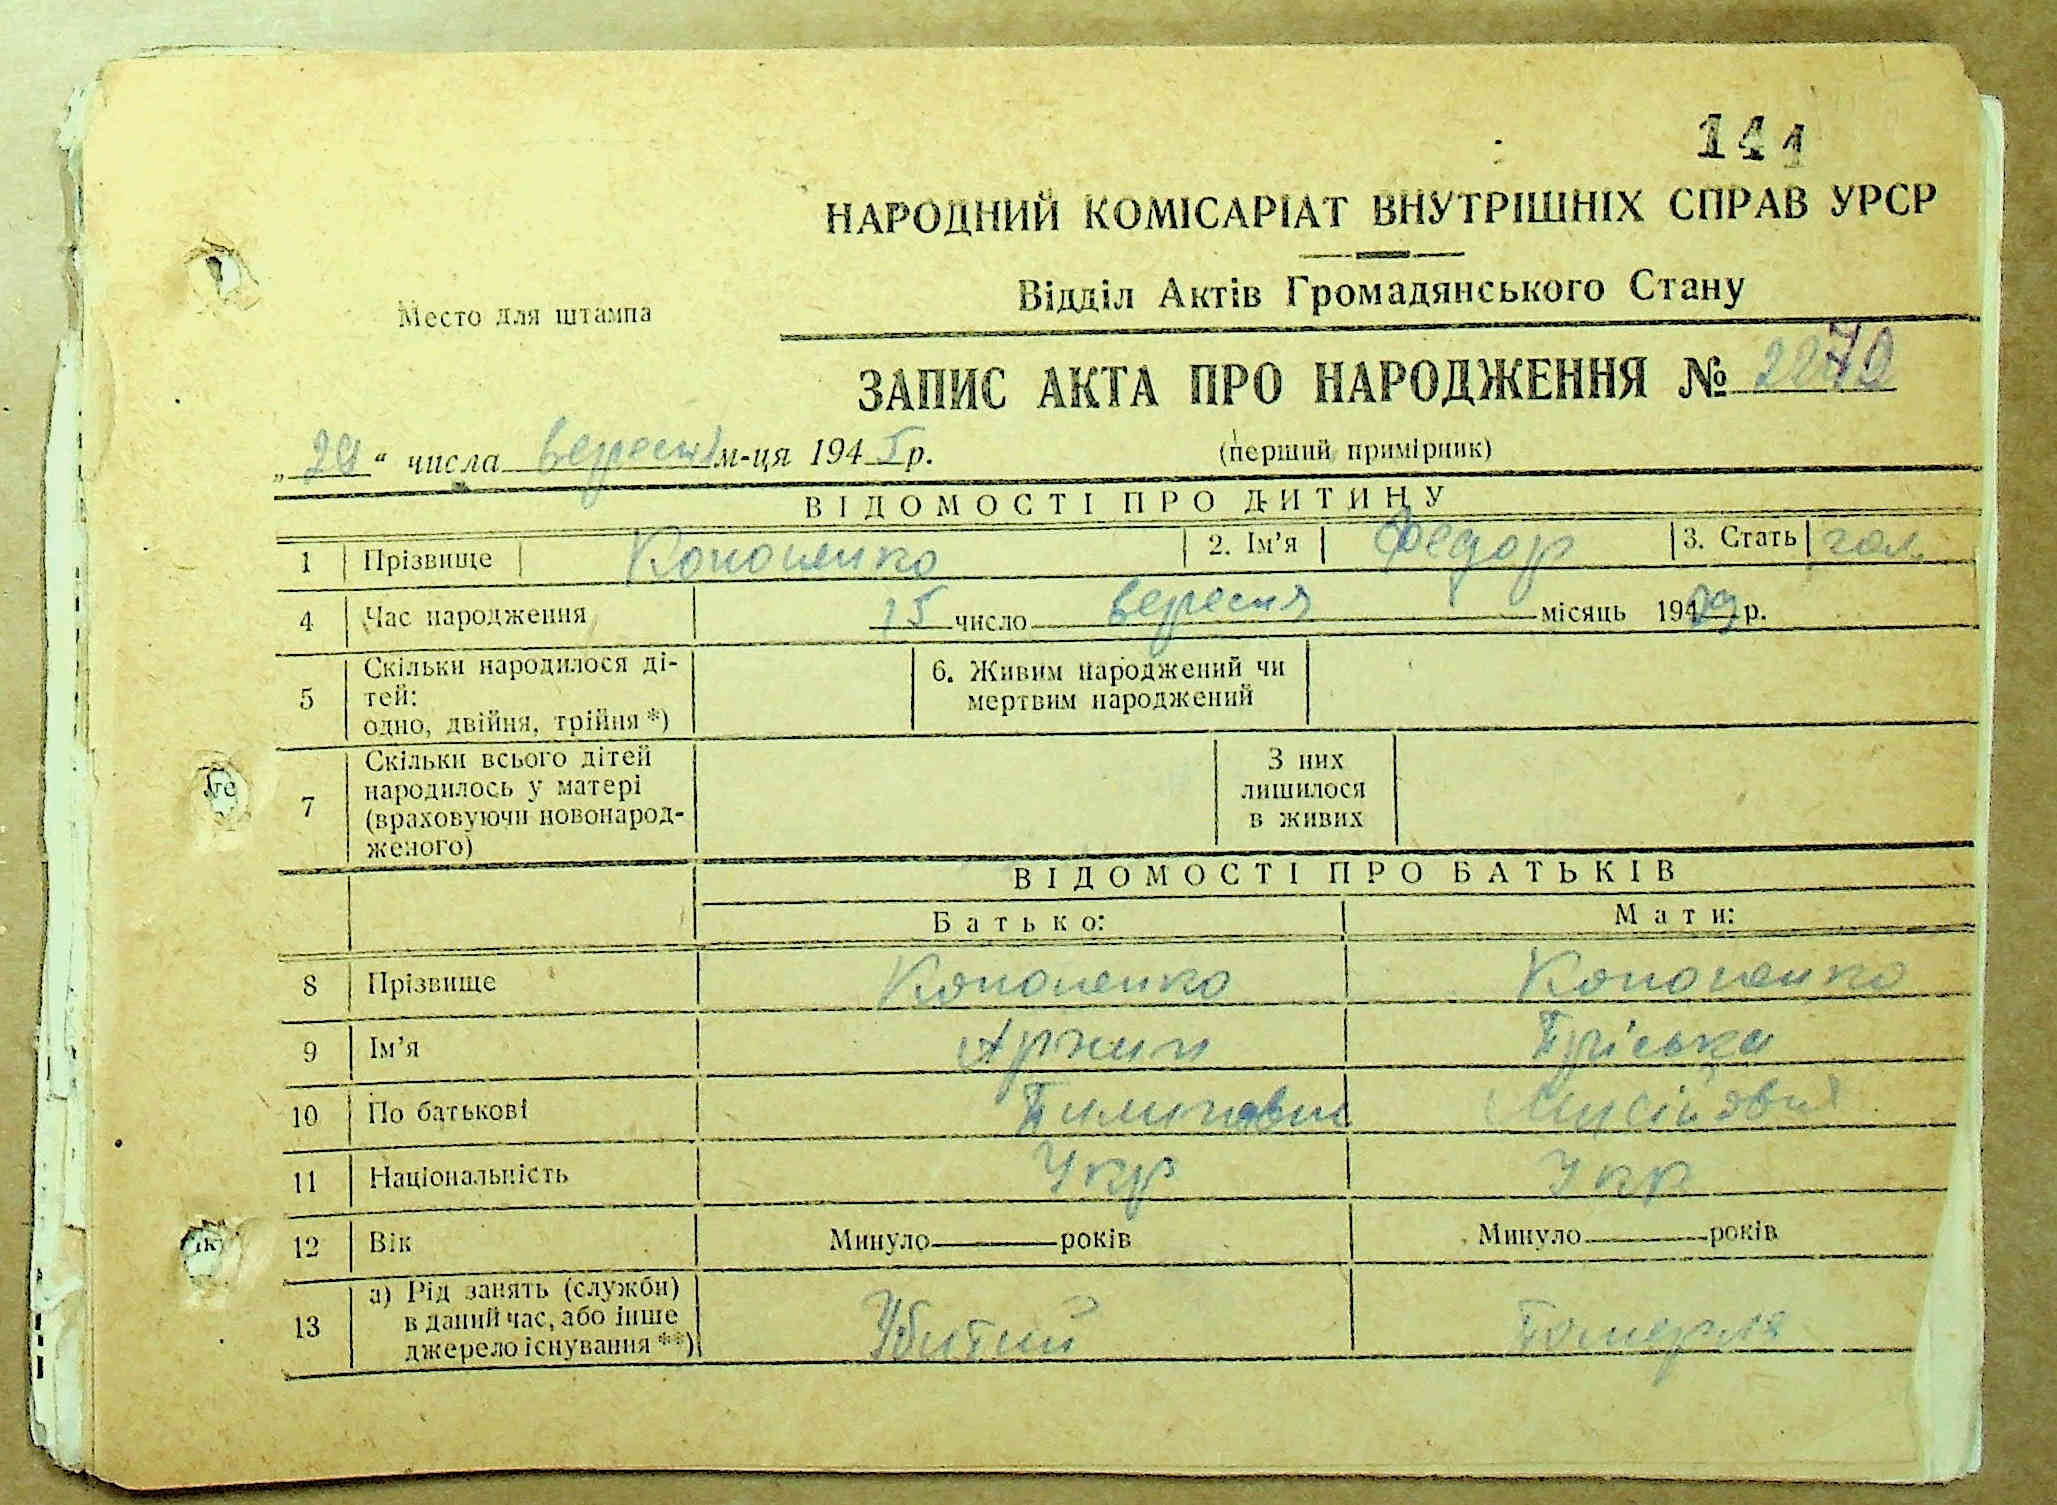 141
НАРОДНИЙ КОМІСАРІАТ ВНУТРІШНІХ СПРАВ УРСР
Відділ Актів Громадянського Стану
Место для штампа
ЗАПИС АКТА ПРО НАРОДЖЕННЯ № 2270
„29“ числа вересня м-ця 1945 р. (перший примірник)
ВІДОМОСТІ ПРО ДИТИНУ
1 Прізвище Кононенко 2. Ім’я Федор 3. Стать чол.
4 Час народження 15 число вересня місяць 1929 р.
5 Скільки народилося ді-
тей:
одно, двійня, трійня *)
6. Живим народжений чи
мертвим народжений
7 Скільки всього дітей
народилось у матері
(враховуючи новонарод-
женого)
З них
лишилося
в живих
ВІДОМОСТІ ПРО БАТЬКІВ
Батько: Мати:
8 Прізвище Кононенко Кононенко
9 Ім’я Архип Пріська
10 По батькові Пилипович Мусійовна
11 Національність Укр Укр
12 Вік Минуло років Минуло років
13 а) Рід занять (служби)
в даний час, або інше
джерело існування **)
Убитий Померла